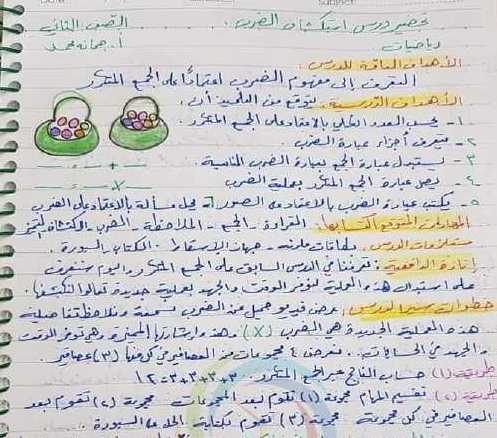 تحضير درس استكشاف الضرب. الصف الثاني
رياضيات أ. جمانة محمد
الأهداف العامة للدرس:
التعرف إلى مفهوم الضرب اعتماداً على الجمع المتكرر
الأهداف التدريسية: يتوقع من التلميذ أن:
١- يحسب العدد الكلي بالاعتماد على الجمع المتكرر.
٢- يتعرف أجزاء عبارة الضرب.
٣- يستبدل عبارة الجمع بعبارة الضرب المناسبة.
٤- يصل عبارة الجمع المتكرر بعملية الضرب
٥- يكتب عبارة الضرب بالاعتماد على الصور ٦- يحل مسألة بالاعتماد على الضرب
المهارات المتوقع اكتسابها: القراءة - الجمع - الملاحظة - الضرب - الاكتشاف
مستلزمات الدرس: بطاقات ملونة - جهاز الإسقاط - الكتاب - السبورة.
إثارة الدافعية: تعرفنا في الدرس السابق على الجمع المتكرر واليوم سنتعرف
على استبدال هذه العملية لنوفر الوقت والجهد بعملية جديدة تعالوا لنكتشفها.
خطوات سير الدرس: عرض فيديو جميل عن الضرب نسمعه ونلاحظ تفاصيله
هذه العملية الجديدة هي الضرب (×) وهذه إشارتها المميزة وهي توفر الوقت
والجهد في الحسابات.. نعرض ٤ مجموعات من العصافير في كل منها (٣) عصافير.
طريقة (١) حساب الناتج عبر الجمع المتكرر. ٣+٣+٣+٣=١٢
طريقة (٢) تقسيم المهام مجموعة (١) تقوم بعد المجموعات. مجموعة (٢) تقوم بعد
العصافير في كل مجموعة. مجموعة (٣) تقوم بكتابة السبورة.